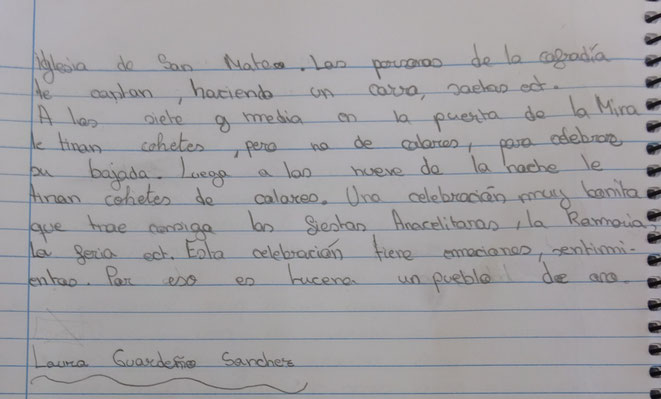 Iglesia de San Mateo. Las personas de la cofradía
le cantan, haciendo un corro, saetas ect.
A las siete y media en la puerta de la Mina
le tiran cohetes, pero no de colores, para celebrar
su bajada. Luego a las nueve de la noche le
tiran cohetes de colores. Una celebración muy bonita
que trae consigo las fiestas Aracelitanas, la Romeria,
la feria ect. Esta celebración tiene emociones, sentimi-
entos. Por eso es Lucena un pueblo de oro.
Laura Guardeño Sanchez